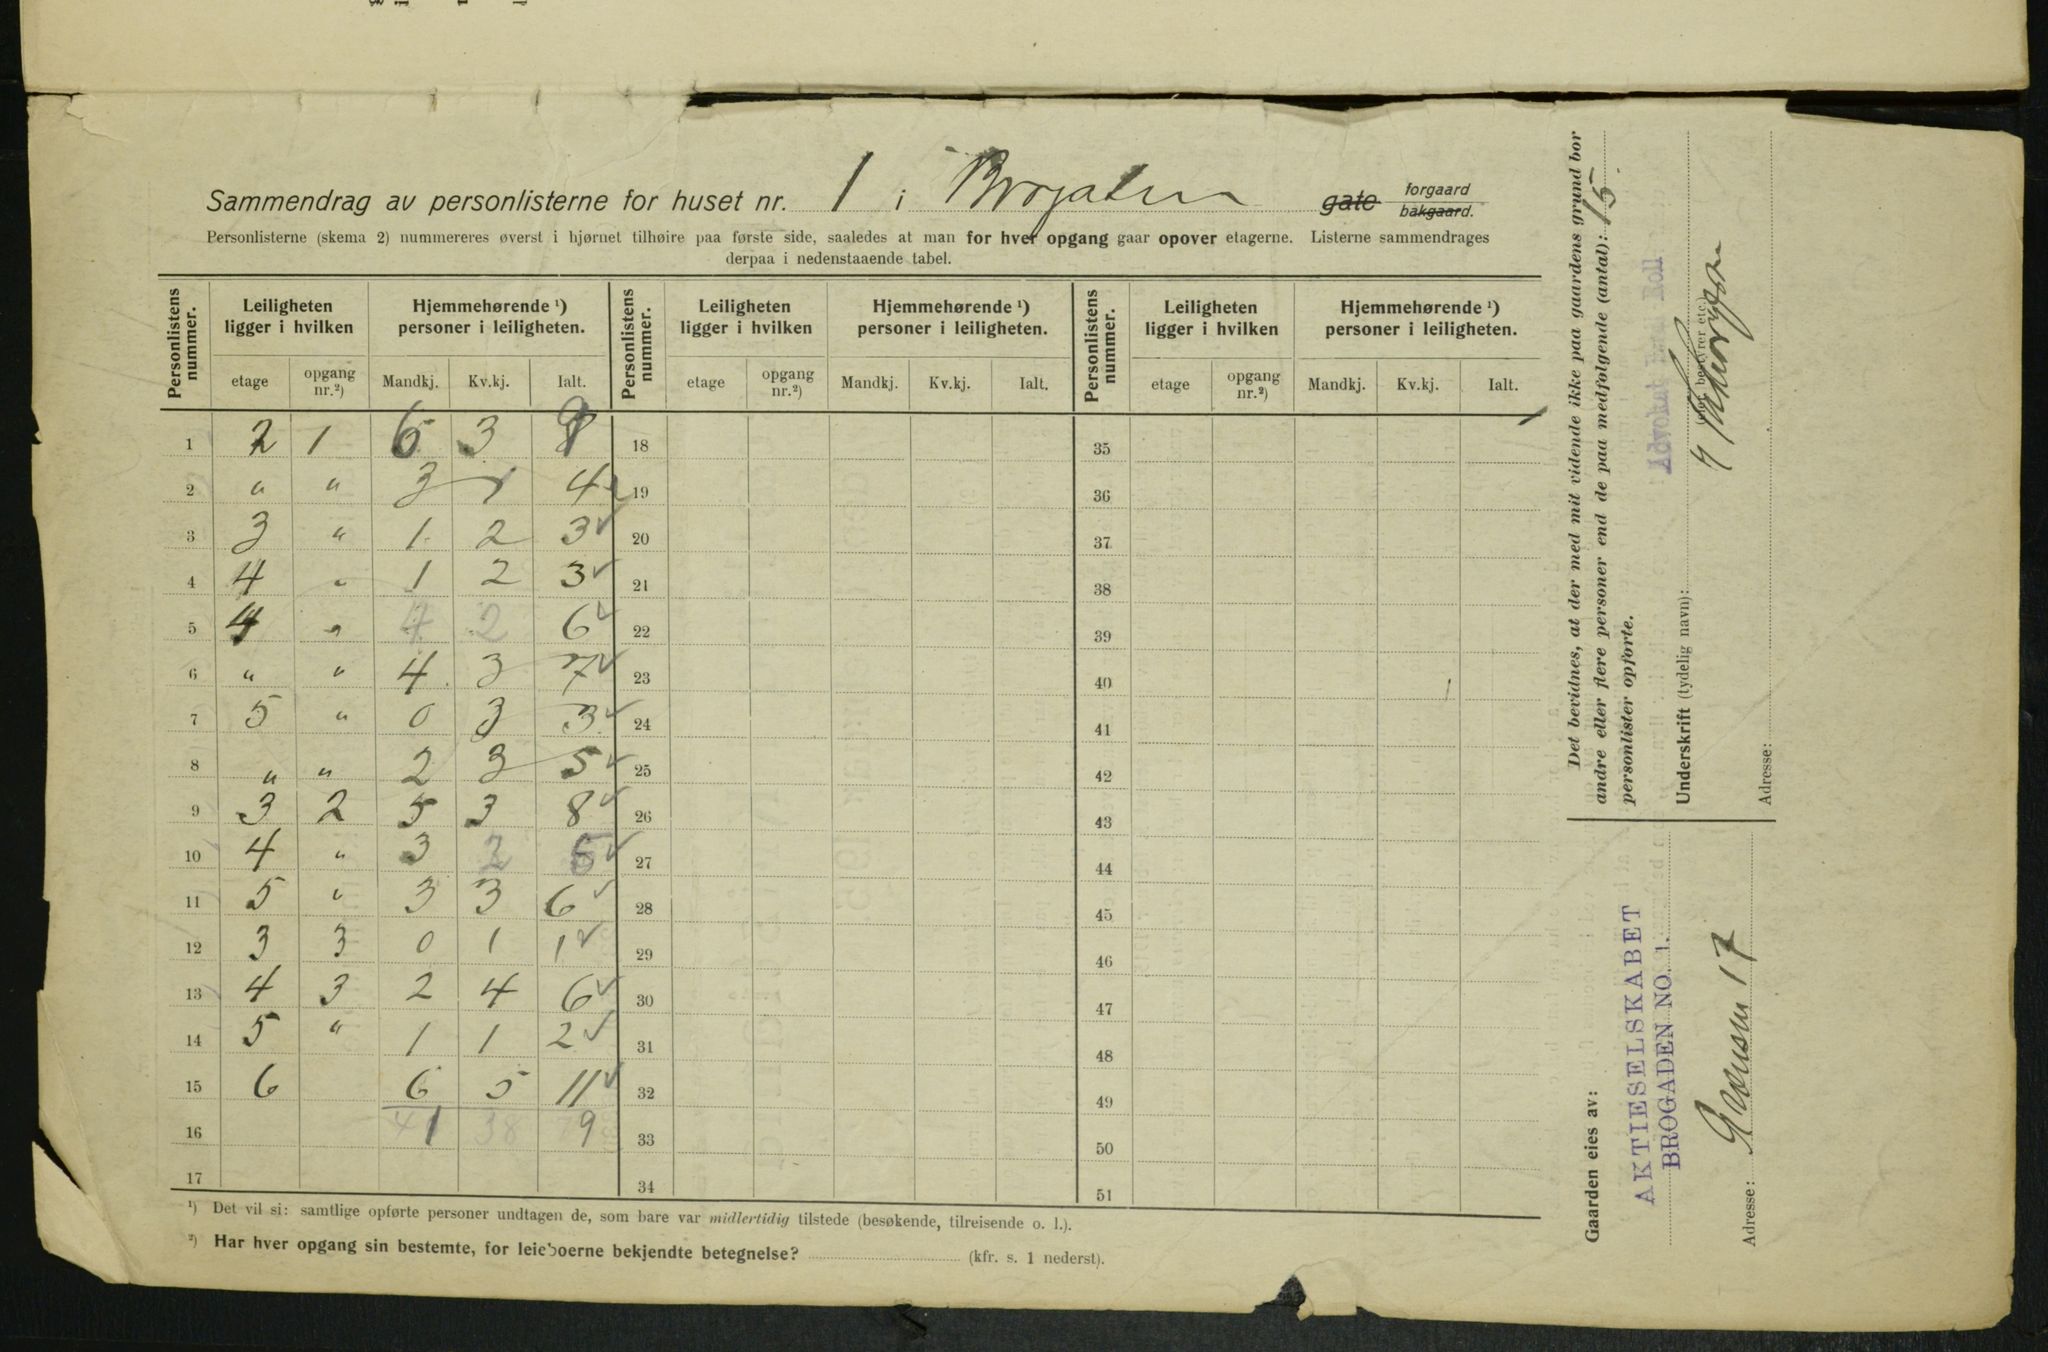 Sammendrag av personlisterne for huset nr. 1 i Brogaten gate forgaard bakgaard.
Personlisterne (skema 2) nummereres øverst i hjørnet tilhøire paa første side, saaledes at man for hver opgang gaar opover etagerne. Listerne sammendrages
derpaa i nedenstaaende tabel.
Personlistens nummer. Leiligheten ligger i hvilken Hjemmehørende ¹) personer i leiligheten. Personlistens nummer. Leiligheten ligger i hvilken Hjemmehørende ¹) personer i leiligheten. Personlistens nummer. Leiligheten ligger i hvilken Hjemmehørende ¹) personer i leiligheten.
etage opgang nr.²) Mandkj. Kv.kj. Ialt. etage opgang nr.²) Mandkj. Kv.kj. Ialt. etage opgang nr.²) Mandkj. Kv.kj. Ialt.
1 2 1 6 3 9 18 35
2 " " 3 1 4 19 36
3 3 " 1 2 3 20 37
4 4 " 1 2 3 21 38
5 4 " 4 2 6 22 39
6 " " 4 3 7 23 40
7 5 " 0 3 3 24 41
8 " " 2 3 5 25 42
9 3 2 5 3 8 26 43
10 4 " 3 2 5 27 44
11 5 " 3 3 6 28 45
12 3 3 0 1 1 29 46
13 4 3 2 4 6 30 47
14 5 " 1 1 2 31 48
15 6 6 5 11 32 49
16 41 38 79 33 50
17 34 51
¹) Det vil si: samtlige opførte personer undtagen de, som bare var midlertidig tilstede (besøkende, tilreisende o. l.).
²) Har hver opgang sin bestemte, for leieboerne bekjendte betegnelse? (kfr. s. 1 nederst).
Det bevidnes, at der med mit vidende ikke paa gaardens grund bor
andre eller flere personer end de paa medfølgende (antal): 15
personlister opførte.
Advokat Roll
Underskrift (tydelig navn):
(eier, bestyrer etc.)
Adresse:
Gaarden eies av:
AKTIESELSKABET
BROGADEN NO. 1.
Adresse: Grænsen 17